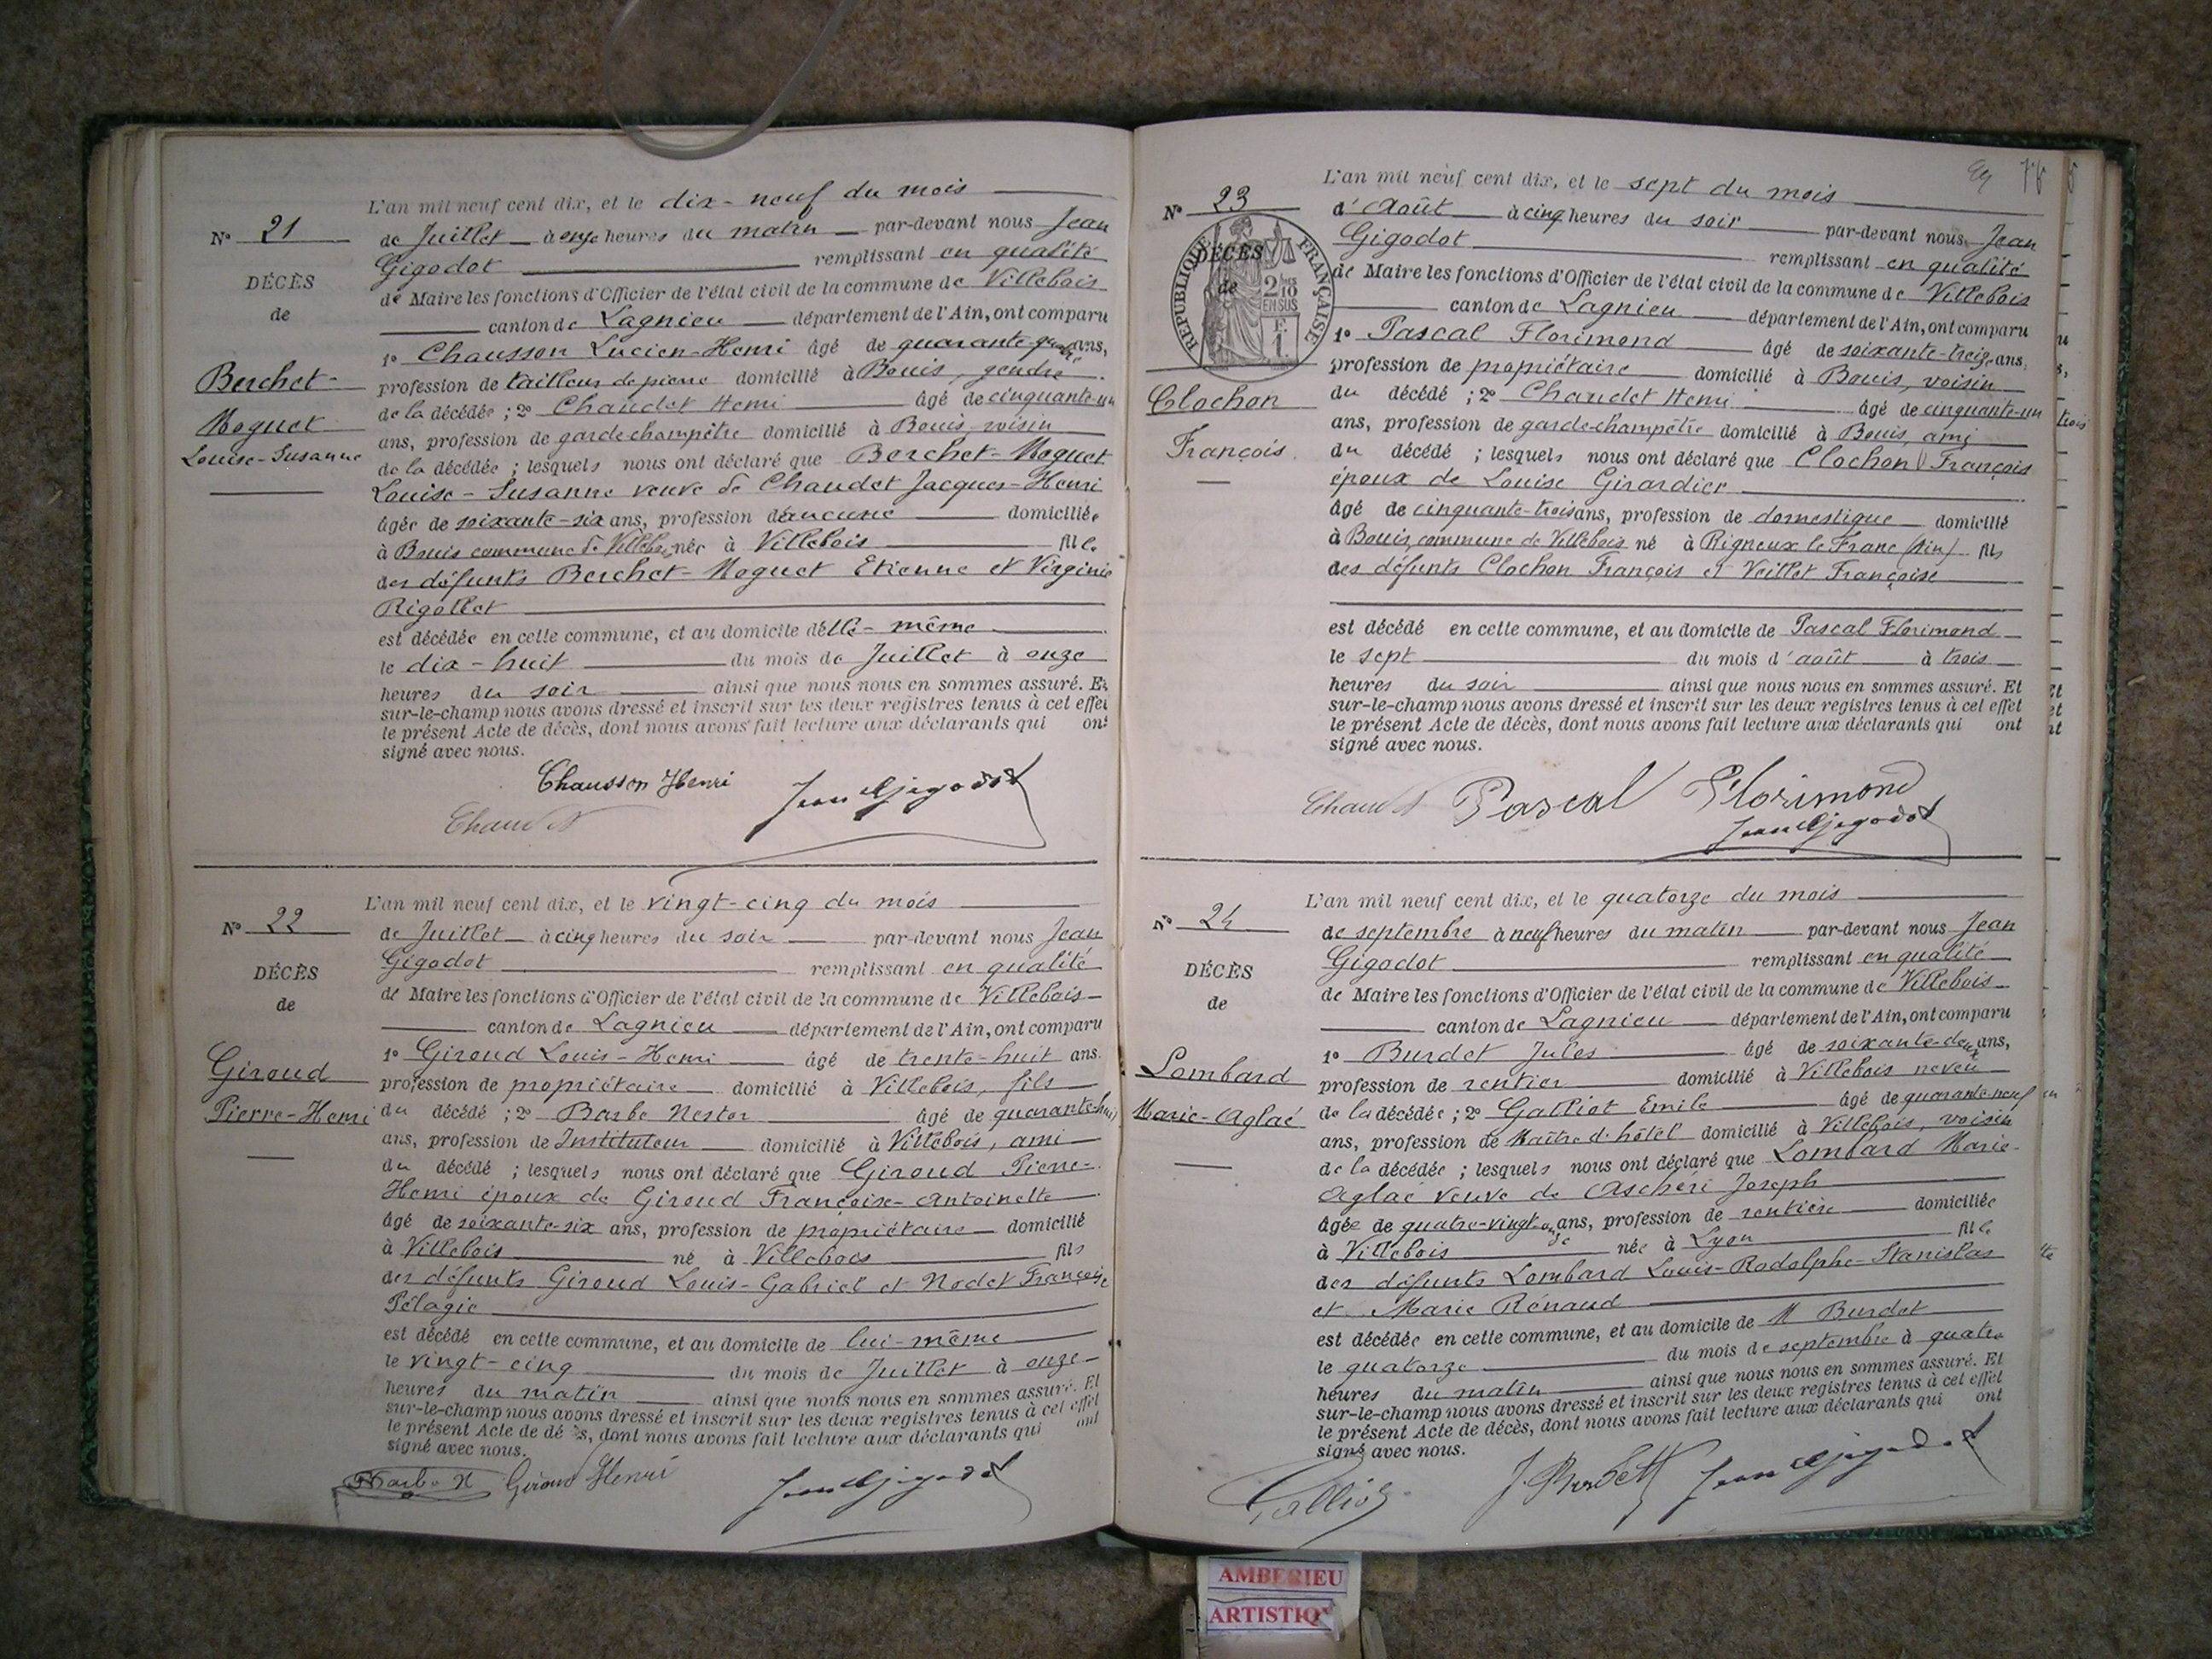 L'an mil neuf cent dix, et le dix-neuf du mois
N° 21
de Juillet à onze heures du matin par-devant nous Jean
Gigodot remplissant en qualité
DÉCÈS
de Maire les fonctions d'Officier de l'état civil de la commune de Villebois
de
canton de Lagnieu département de l'Ain, ont comparu
1° Chausson Lucien-Henri âgé de quarante-quatre ans,
Berchet-
profession de tailleur de pierre domicilié à Bouis, gendre
Moguet
de la décédée ; 2° Chaudet Henri âgé de cinquante-un
Louise-Susanne
ans, profession de garde-champêtre domicilié à Bouis, voisin
de la décédée ; lesquels nous ont déclaré que Berchet-Moguet
Louise-Susanne veuve de Chaudet Jacques-Henri
âgée de soixante-six ans, profession d'aucune domiciliée
à Bouis commune de Villebois, née à Villebois fille
des défunts Berchet-Moguet Etienne et Virginie
Rigollet
est décédée en cette commune, et au domicile d'elle-même
le dix-huit du mois de Juillet à onze
heures du soir ainsi que nous nous en sommes assuré. Et
sur-le-champ nous avons dressé et inscrit sur les deux registres tenus à cet effet
le présent Acte de décès, dont nous avons fait lecture aux déclarants qui ont
signé avec nous.
Chausson Henri Jean Gigodot
Chaudet
L'an mil neuf cent dix, et le vingt-cinq du mois
N° 22
de Juillet à cinq heures du soir par-devant nous Jean
Gigodot remplissant en qualité
DÉCÈS
de Maire les fonctions d'Officier de l'état civil de la commune de Villebois
de
canton de Lagnieu département de l'Ain, ont comparu
1° Giroud Louis-Henri âgé de trente-huit ans.
Giroud
profession de propriétaire domicilié à Villebois, fils
Pierre-Henri
du décédé ; 2° Barbe Nestor âgé de quarante-huit
ans, profession de Instituteur domicilié à Villebois, ami
du décédé ; lesquels nous ont déclaré que Giroud Pierre-
Henri époux de Giroud Françoise-Antoinette
âgé de soixante-six ans, profession de propriétaire domicilié
à Villebois né à Villebois fils
des défunts Giroud Louis-Gabriel et Nodet Françoise
Pélagie
est décédé en cette commune, et au domicile de lui-même
le vingt-cinq du mois de Juillet à onze
heures du matin ainsi que nous nous en sommes assuré. Et
sur-le-champ nous avons dressé et inscrit sur les deux registres tenus à cet effet
le présent Acte de décès, dont nous avons fait lecture aux déclarants qui ont
signé avec nous.
Barbe N Giroud Henri Jean Gigodot
L'an mil neuf cent dix, et le sept du mois
N° 23
d'Août à cinq heures du soir par-devant nous Jean
Gigodot remplissant en qualité
DÉCÈS
de
RÉPUBLIQUE FRANÇAISE
2/10 EN SUS
F. 1
de Maire les fonctions d'Officier de l'état civil de la commune de Villebois
canton de Lagnieu département de l'Ain, ont comparu
1° Pascal Florimond âgé de soixante-treize ans,
profession de propriétaire domicilié à Bouis, voisin
Clochon
du décédé ; 2° Chaudet Henri âgé de cinquante-un
ans, profession de garde-champêtre domicilié à Bouis, ami
François
du décédé ; lesquels nous ont déclaré que Clochon François
époux de Louise Girardier
âgé de cinquante-trois ans, profession de domestique domicilié
à Bouis, commune de Villebois né à Rigneux le Franc (Ain) fils
des défunts Clochon François et Veillet Françoise
est décédé en cette commune, et au domicile de Pascal Florimond
le sept du mois d'août à trois
heures du soir ainsi que nous nous en sommes assuré. Et
sur-le-champ nous avons dressé et inscrit sur les deux registres tenus à cet effet
le présent Acte de décès, dont nous avons fait lecture aux déclarants qui ont
signé avec nous.
Chaudet Pascal Florimond
Jean Gigodot
L'an mil neuf cent dix, et le quatorze du mois
N° 24
de septembre à neuf heures du matin par-devant nous Jean
Gigodot remplissant en qualité
DÉCÈS
de Maire les fonctions d'Officier de l'état civil de la commune de Villebois
de
canton de Lagnieu département de l'Ain, ont comparu
1° Burdet Jules âgé de soixante-deux ans,
Lombard
profession de rentier domicilié à Villebois neveu
Marie-Aglaé
de la décédée ; 2° Galliot Emile âgé de quarante-neuf
ans, profession de Maître d'hôtel domicilié à Villebois, voisin
de la décédée ; lesquels nous ont déclaré que Lombard Marie-
Aglaé veuve de Aschéri Joseph
âgée de quatre-vingt-onze ans, profession de rentière domiciliée
à Villebois née à Lyon fille
des défunts Lombard Louis-Rodolphe-Stanislas
et Marie Rénaud
est décédée en cette commune, et au domicile de M Burdet
le quatorze du mois de septembre à quatre
heures du matin ainsi que nous nous en sommes assuré. Et
sur-le-champ nous avons dressé et inscrit sur les deux registres tenus à cet effet
le présent Acte de décès, dont nous avons fait lecture aux déclarants qui ont
signé avec nous.
Galliot J. Burdet Jean Gigodot
AMBERIEU
ARTISTIQ